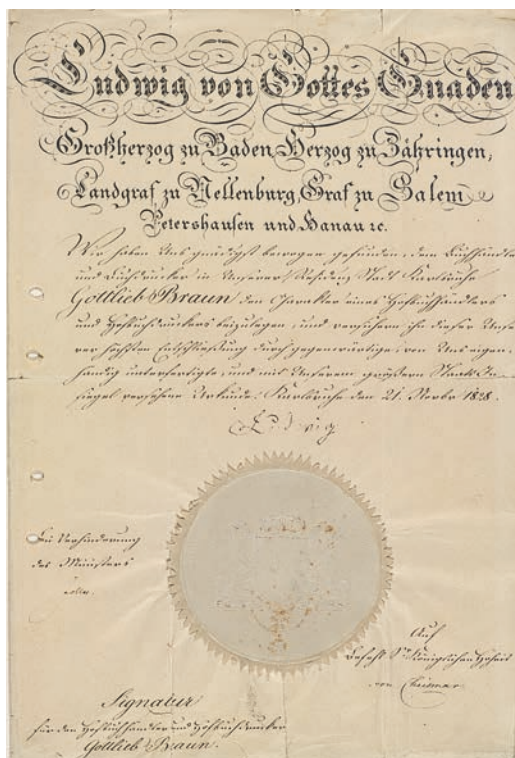 Ludwig von Gottes Gnaden
Großherzog zu Baden, Herzog zu Zähringen,
Landgraf zu Nellenburg, Graf zu Salem
Petershausen und Hanau ꝛc.
Wir haben Uns gnädigst bewogen gefunden, dem Buchhändler
und Buchdrucker in Unserer Residenz Stadt Karlsruhe
Gottlieb Braun den Charakter eines Hofbuchhändlers
und Hofbuchdruckers beizulegen, und versichern ihn dieser Unse
rer höchsten Entschließung durch gegenwärtige, von Uns eigen-
händig unterfertigte, und mit Unserem größern Staats In-
siegel versehene Urkunde. Karlsruhe den 21. Novbr 1828.
Ludwig
Bei Verhinderung
des Ministers
Auf
Befehl Sr Königlichen Hoheit
von
Signatur
für den Hofbuchhändler und Hofbuchdrucker
Gottlieb Braun.